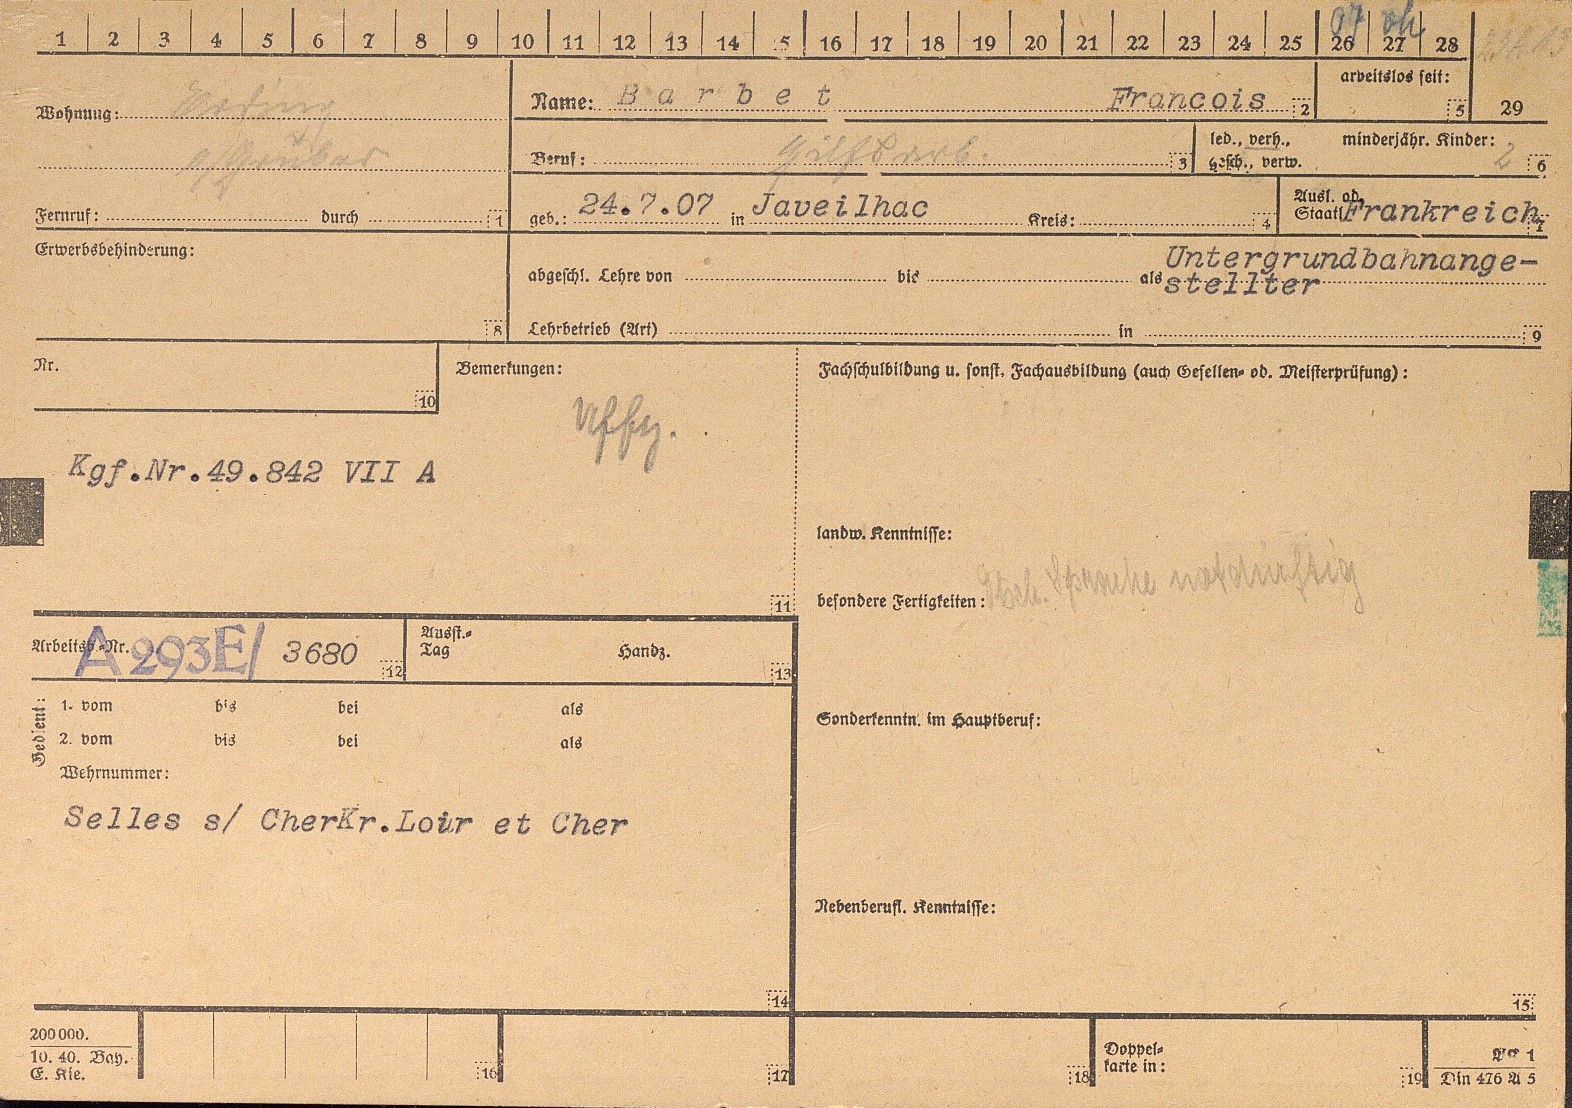 1 2 3 4 5 6 7 8 9 10 11 12 13 14 15 16 17 18 19 20 21 22 23 24 25 26 27 28
07
Wohnung: Erding
Name: Barbet Francois 2
arbeitslos seit: 5
29
Beruf: Hilfsarb. 3
led., verh., gesch., verw.
minderjähr. Kinder: 2 6
Fernruf: durch 1
geb.: 24.7.07 in Javeilhac Kreis: 4
Ausl. od. Staatl. Frankreich 7
Erwerbsbehinderung: 8
abgeschl. Lehre von bis als Untergrundbahnange-
stellter
Lehrbetrieb (Art) in 9
Nr. 10
Bemerkungen:
Uffz.
Kgf.Nr.49.842 VII A
11
Fachschulbildung u. sonst. Fachausbildung (auch Gesellen- od. Meisterprüfung):
landw. Kenntnisse:
besondere Fertigkeiten: Sprache notdürftig
Arbeitsb.-Nr. A 293E/ 3680 12
Ausst.-
Tag Handz. 13
Gedient:
1. vom bis bei als
2. vom bis bei als
Wehrnummer:
Selles s/ CherKr.Loir et Cher
14
Sonderkenntn. im Hauptberuf:
Nebenberufl. Kenntnisse:
15
200 000.
10. 40. Bay.
E. Kie.
16
17
18
Doppel-
karte in:
19
1
Din 476 A 5